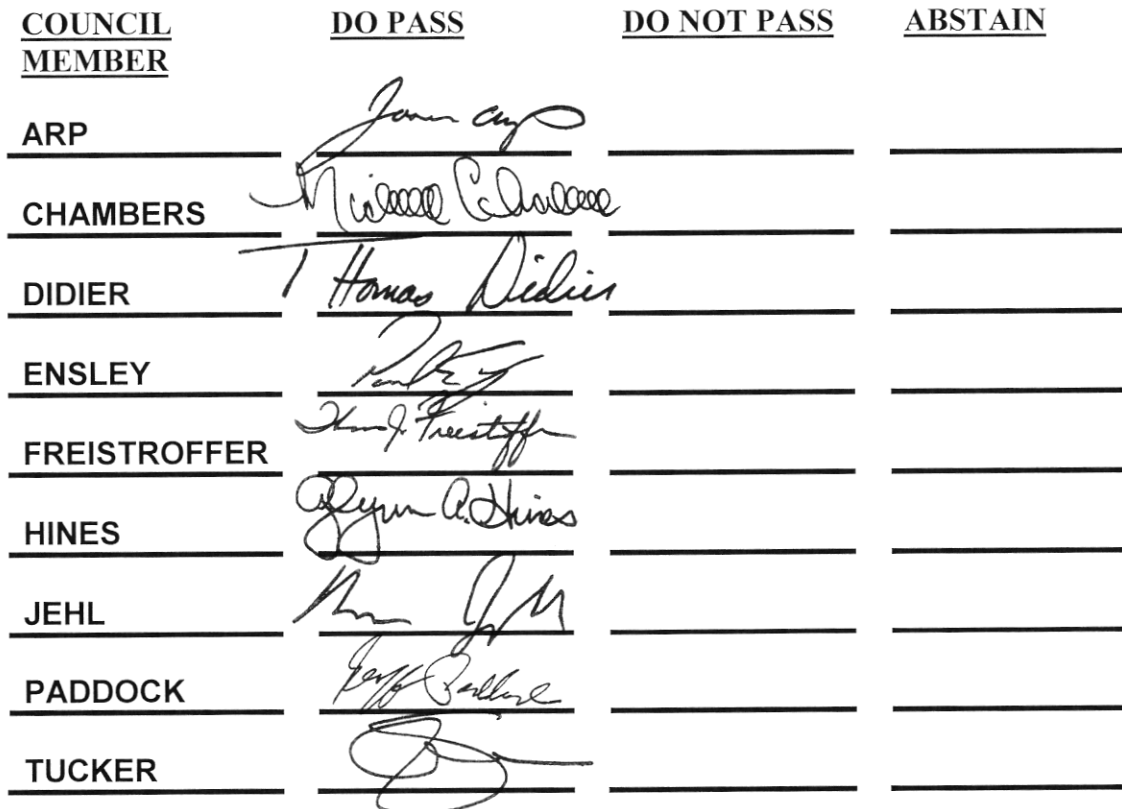 COUNCIL MEMBER DO PASS DO NOT PASS ABSTAIN
ARP
CHAMBERS Michelle Chambers
DIDIER Thomas Didier
ENSLEY Paul
FREISTROFFER Thomas J. Freistroffer
HINES Glynn A. Hines
JEHL
PADDOCK Geoff Paddock
TUCKER